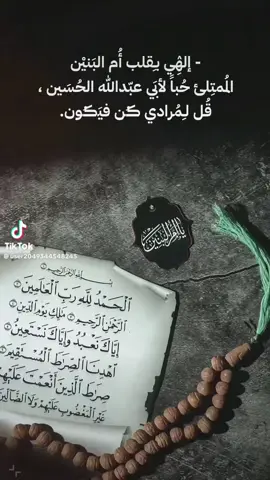 - إلهِي يـقلب أُم البَنيْن
المُمتِلئ حُباً لأبَي عبّدالله الحُسَين ،
قُل لِـمُرادي كَن فَيَكون.
يا ام البنين
TikTok
@user2049344548245
بسم الله الرحمن الرحيم
ٱلْحَمْدُ لِلَّهِ رَبِّ ٱلْعَالَمِينَ
ٱلرَّحْمَٰنِ ٱلرَّحِيمِ مَٰلِكِ يَوْمِ ٱلدِّينِ
إِيَّاكَ نَعْبُدُ وَإِيَّاكَ نَسْتَعِينُ
ٱهْدِنَا ٱلصِّرَٰطَ ٱلْمُسْتَقِيمَ
صِرَٰطَ ٱلَّذِينَ أَنْعَمْتَ عَلَيْهِمْ
غَيْرِ ٱلْمَغْضُوبِ عَلَيْهِمْ وَلَا ٱلضَّآلِّينَ